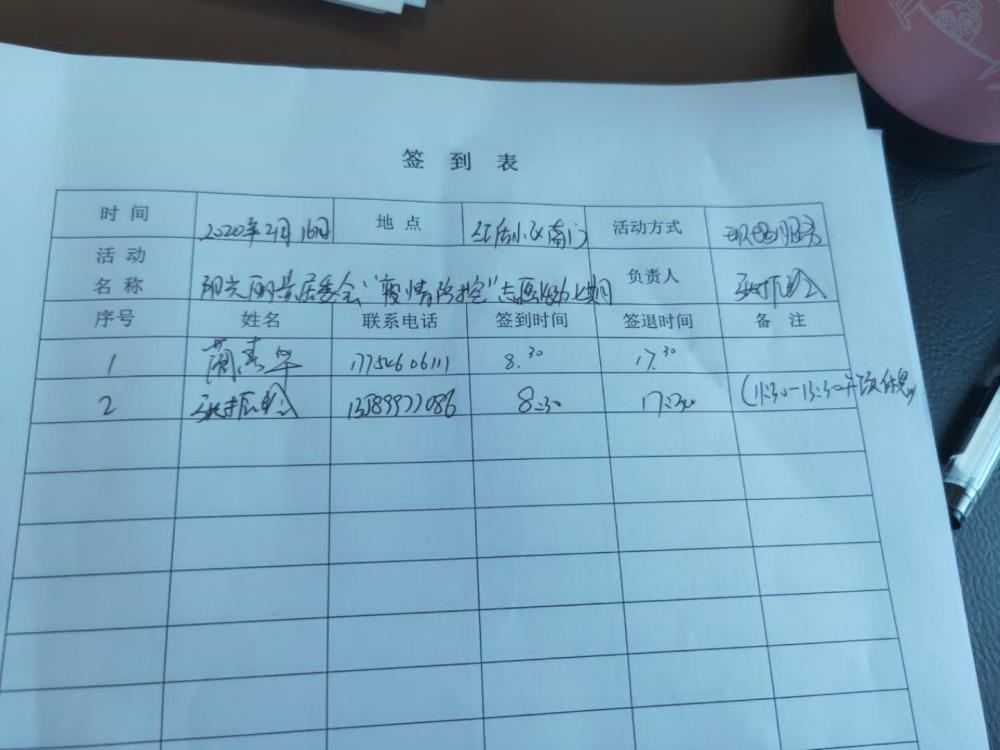 签到表
时间 2020年2月16日 地点 小区南门 活动方式 现场服务
活动名称 阳光丽景居委会"疫情防控"志愿 七期 负责人
序号 姓名 联系电话 签到时间 签退时间 备注
1 17754606111 8:30 17:30
2 13189977086 8:30 17:30 (11:30-13:30 休息)